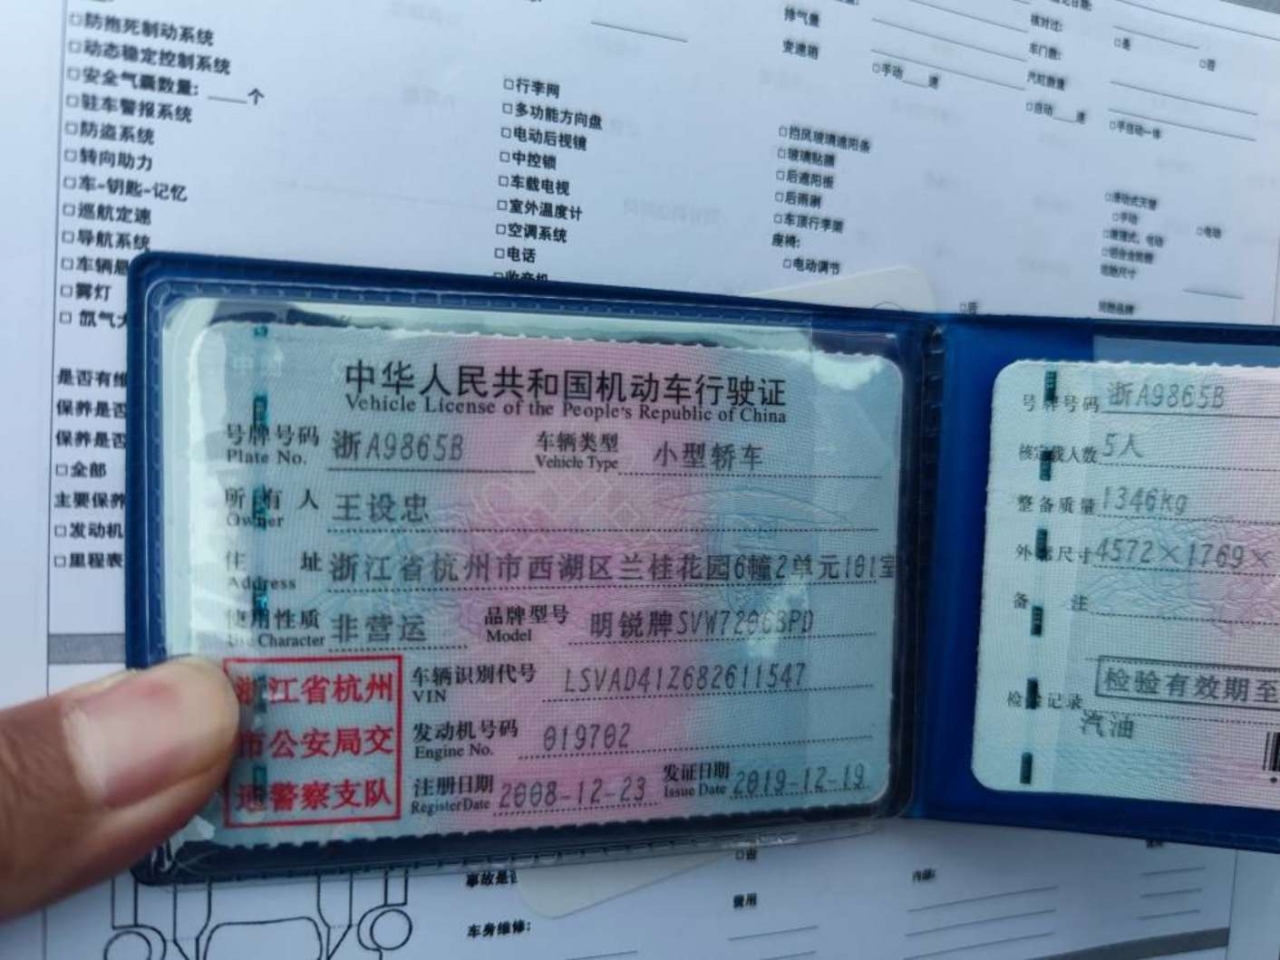 □防抱死制动系统
□动态稳定控制系统
□安全气囊数量: ___个
□驻车警报系统
□防盗系统
□转向助力
□车-钥匙-记忆
□巡航定速
□导航系统
□车辆悬
□雾灯
□ 氙气大
是否有维
保养是否
保养是否
□全部
主要保养
□发动机
□里程表
□行李网
□多功能方向盘
□电动后视镜
□中控锁
□车载电视
□室外温度计
□空调系统
□电话
□收音机
排气量
变速箱
□手动___速
□自动___速
□手自动一体
核对过:
□是
□否
车门数:
汽缸数量
□挡风玻璃遮阳条
□玻璃贴膜
□后遮阳板
□后雨刷
□车顶行李架
座椅:
□电动调节
□手动
□电动
中华人民共和国机动车行驶证
Vehicle License of the People's Republic of China
号牌号码 浙A9865B 车辆类型 小型轿车
Plate No. Vehicle Type
所有人 王设忠
Owner
住址 浙江省杭州市西湖区兰桂花园6幢2单元101室
Address
使用性质 非营运 品牌型号 明锐牌SVW7206BPD
Use Character Model
浙江省杭州
市公安局交
通警察支队
车辆识别代号 LSVAD41Z682611547
VIN
发动机号码 019702
Engine No.
注册日期 2008-12-23 发证日期 2019-12-19
Register Date Issue Date
号牌号码 浙A9865B
核定载人数 5人
整备质量 1346kg
外廓尺寸 4572×1769×
备注
检验有效期至
检验记录
汽油
事故是
车身维修:
费用